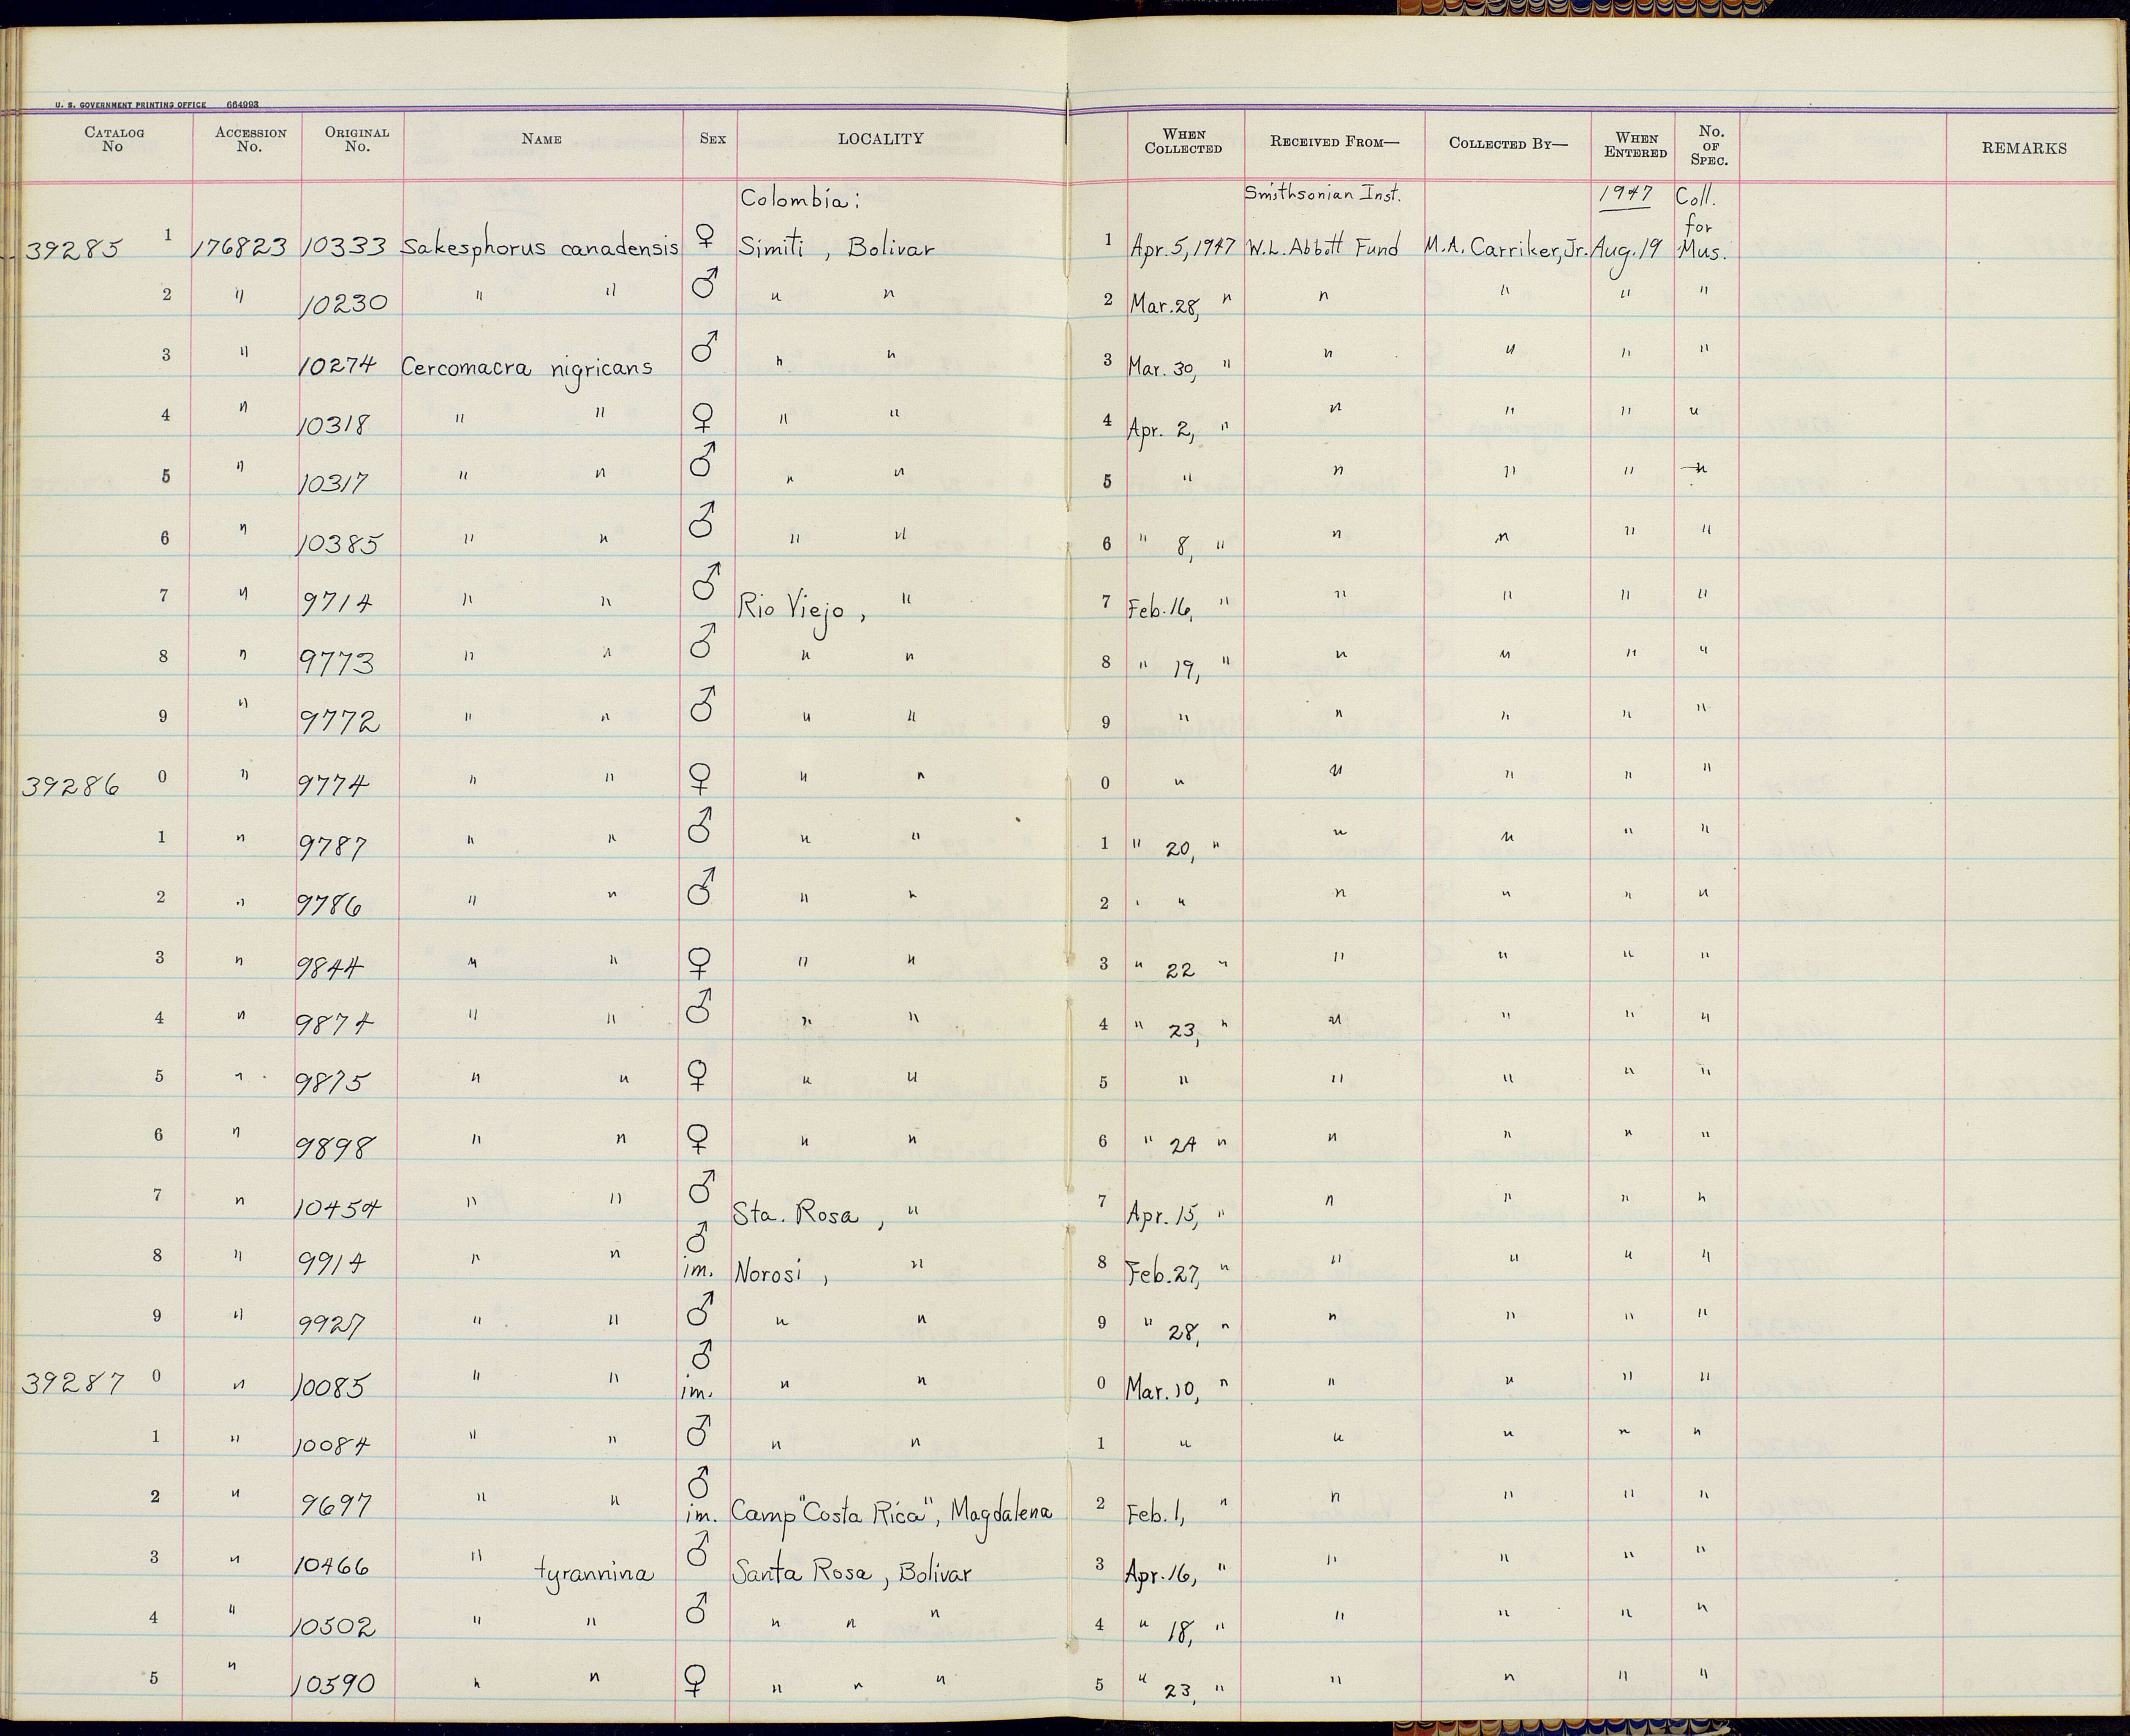 U. S. GOVERNMENT PRINTING OFFICE 664993
Catalog No Accession No. Original No. Name Sex LOCALITY When Collected Received From— Collected By— When Entered No. of Spec. REMARKS
Colombia: Smithsonian Inst. 1947 Coll. for
39285 1 176823 10333 Sakesphorus canadensis ♀ Simiti, Bolivar 1 Apr. 5, 1947 W.L. Abbott Fund M.A. Carriker, Jr. Aug. 19 Mus.
2 " 10230 " " ♂ " " 2 Mar. 28, " " " " "
3 " 10274 Cercomacra nigricans ♂ " " 3 Mar. 30, " " " " "
4 " 10318 " " ♀ " " 4 Apr. 2, " " " " "
5 " 10317 " " ♂ " " 5 " " " " "
6 " 10385 " " ♂ " " 6 " 8, " " " " "
7 " 9714 " " ♂ Rio Viejo, " 7 Feb. 16, " " " " "
8 " 9773 " " ♂ " " 8 " 19, " " " " "
9 " 9772 " " ♂ " " 9 " " " " "
39286 0 " 9774 " " ♀ " " 0 " " " " "
1 " 9787 " " ♂ " " 1 " 20, " " " " "
2 " 9786 " " ♂ " " 2 " " " " " "
3 " 9844 " " ♀ " " 3 " 22 " " " " "
4 " 9874 " " ♂ " " 4 " 23, " " " " "
5 " 9875 " " ♀ " " 5 " " " " "
6 " 9898 " " ♀ " " 6 " 24 " " " " "
7 " 10454 " " ♂ Sta. Rosa, " 7 Apr. 15, " " " " "
8 " 9914 " " ♂ im. Norosi, " 8 Feb. 27, " " " " "
9 " 9927 " " ♂ " " 9 " 28, " " " " "
39287 0 " 10085 " " ♂ im. " " 0 Mar. 10, " " " " "
1 " 10084 " " ♂ " " 1 " " " " "
2 " 9697 " " ♂ im. Camp "Costa Rica", Magdalena 2 Feb. 1, " " " " "
3 " 10466 " tyrannina ♂ Santa Rosa, Bolivar 3 Apr. 16, " " " " "
4 " 10502 " " ♂ " " " 4 " 18, " " " " "
5 " 10590 " " ♀ " " " 5 " 23, " " " " "